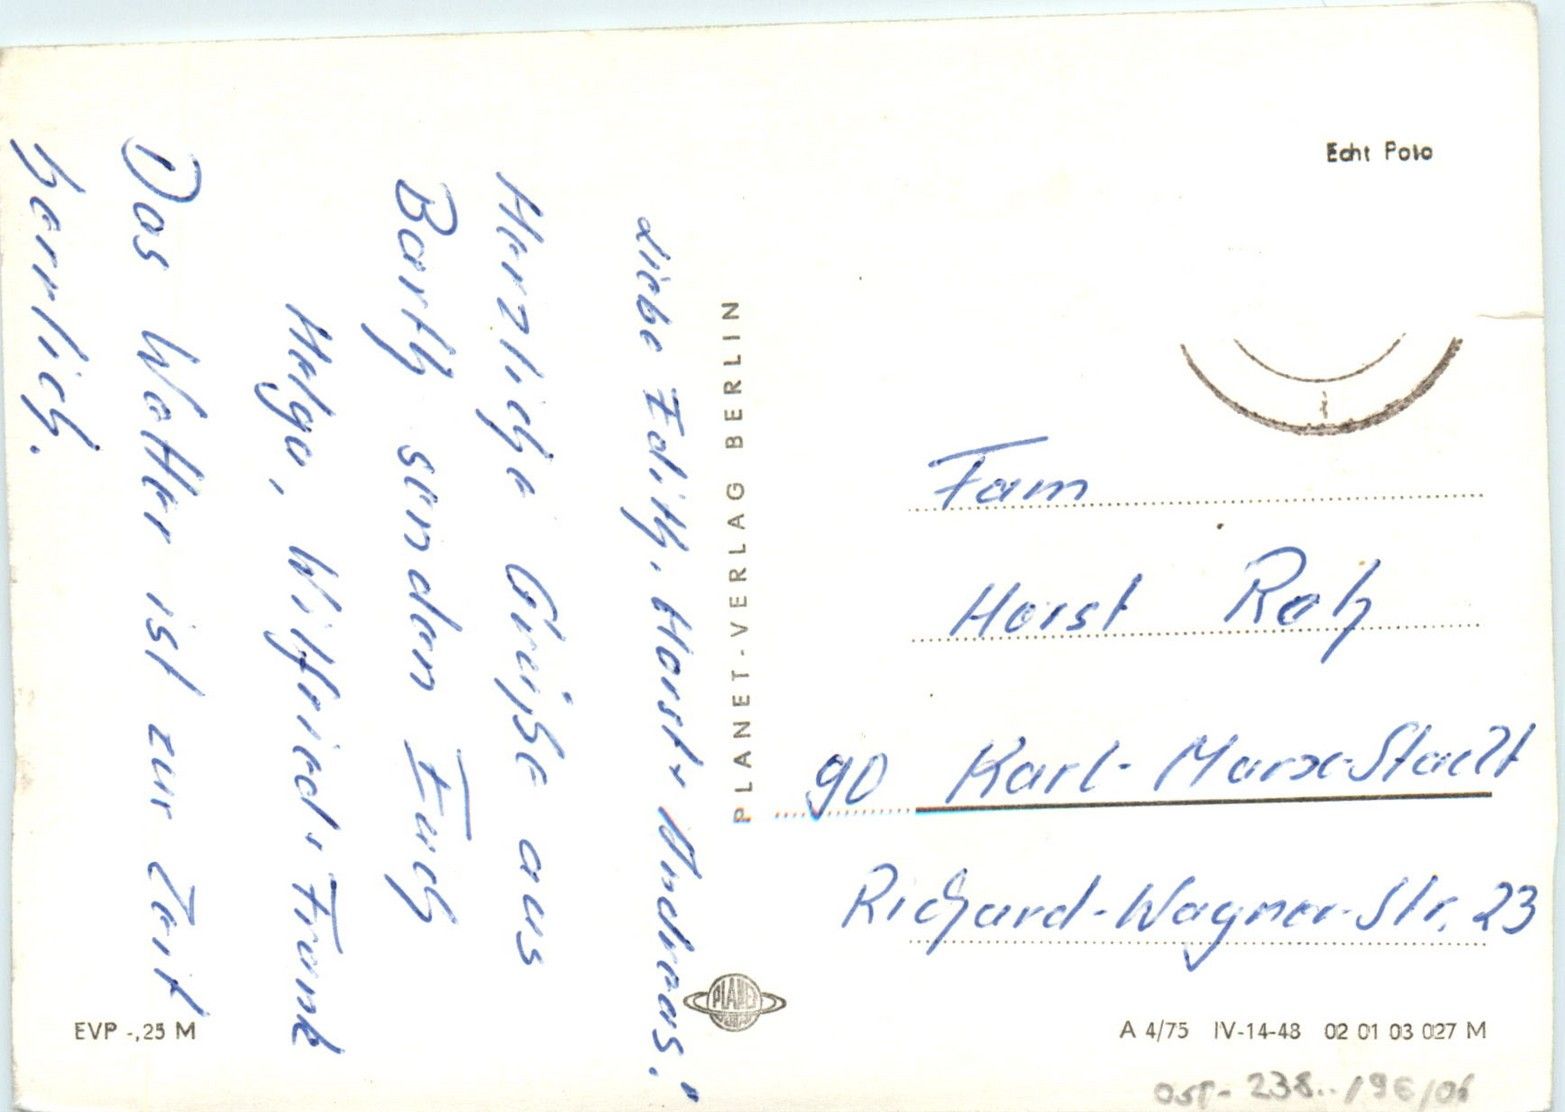 Liebe Edith, Horst + Andreas!
Herzliche Grüße aus
Barth senden Euch
Helga, Wilfried + Frank
Das Wetter ist zur Zeit
herrlich.
PLANET-VERLAG BERLIN
Echt Foto
Fam
Horst
90 Karl-Marx-Stadt
Richard-Wagner-Str. 23
PLANET
EVP -,25 M
A 4/75 IV-14-48 02 01 03 027 M